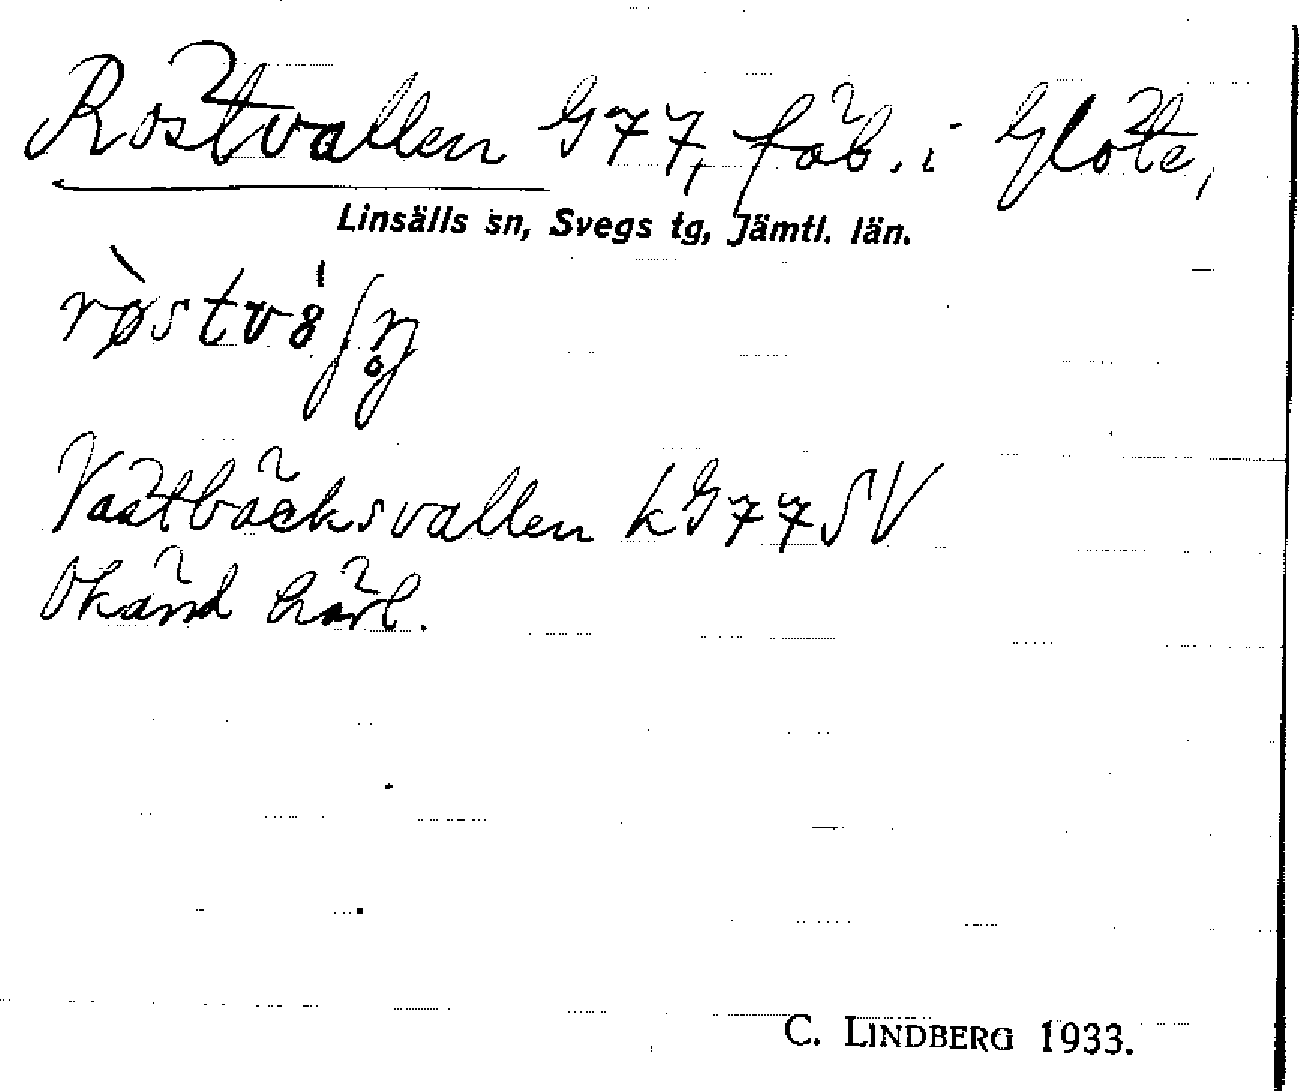 Röstvallen G77, fäb. i Glöte,
Linsälls sn, Svegs tg, Jämtl. län.
Våtbäcksvallen kG77SV
Okänd härl.
C. LINDBERG 1933.